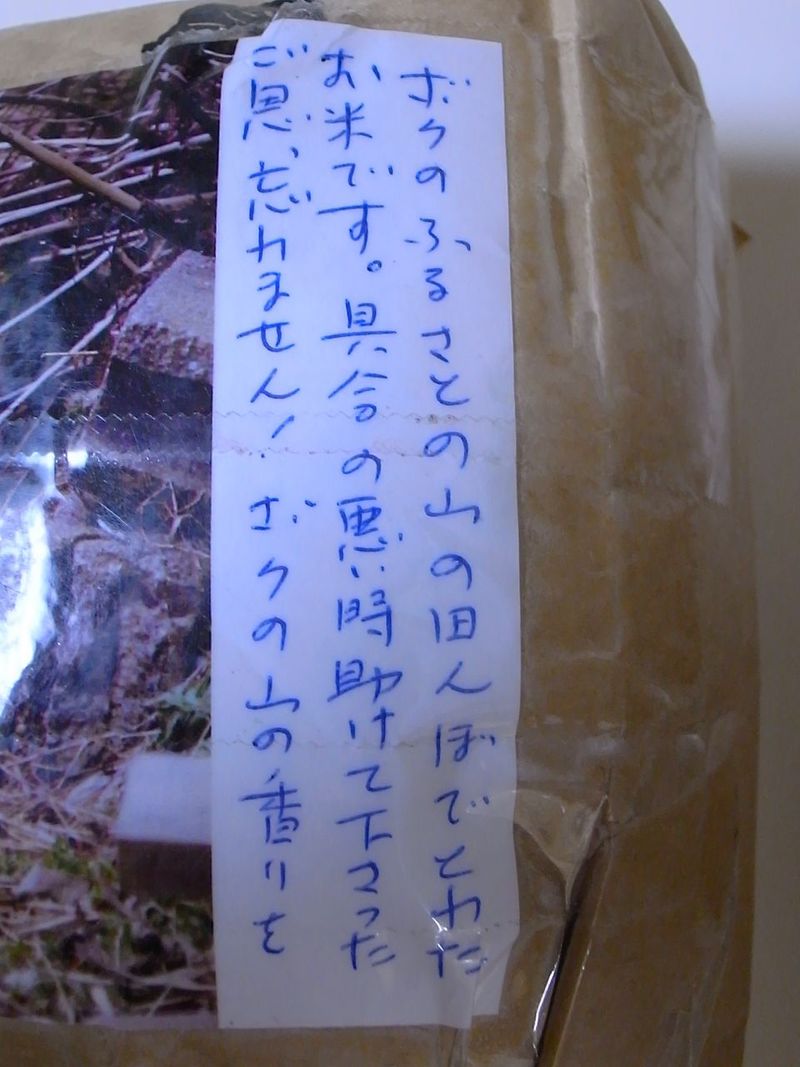 ボクのふるさとの山の田んぼでとれた
お米です。具合の悪い時助けて下さった
ご恩、忘れません! ボクの山の香りを